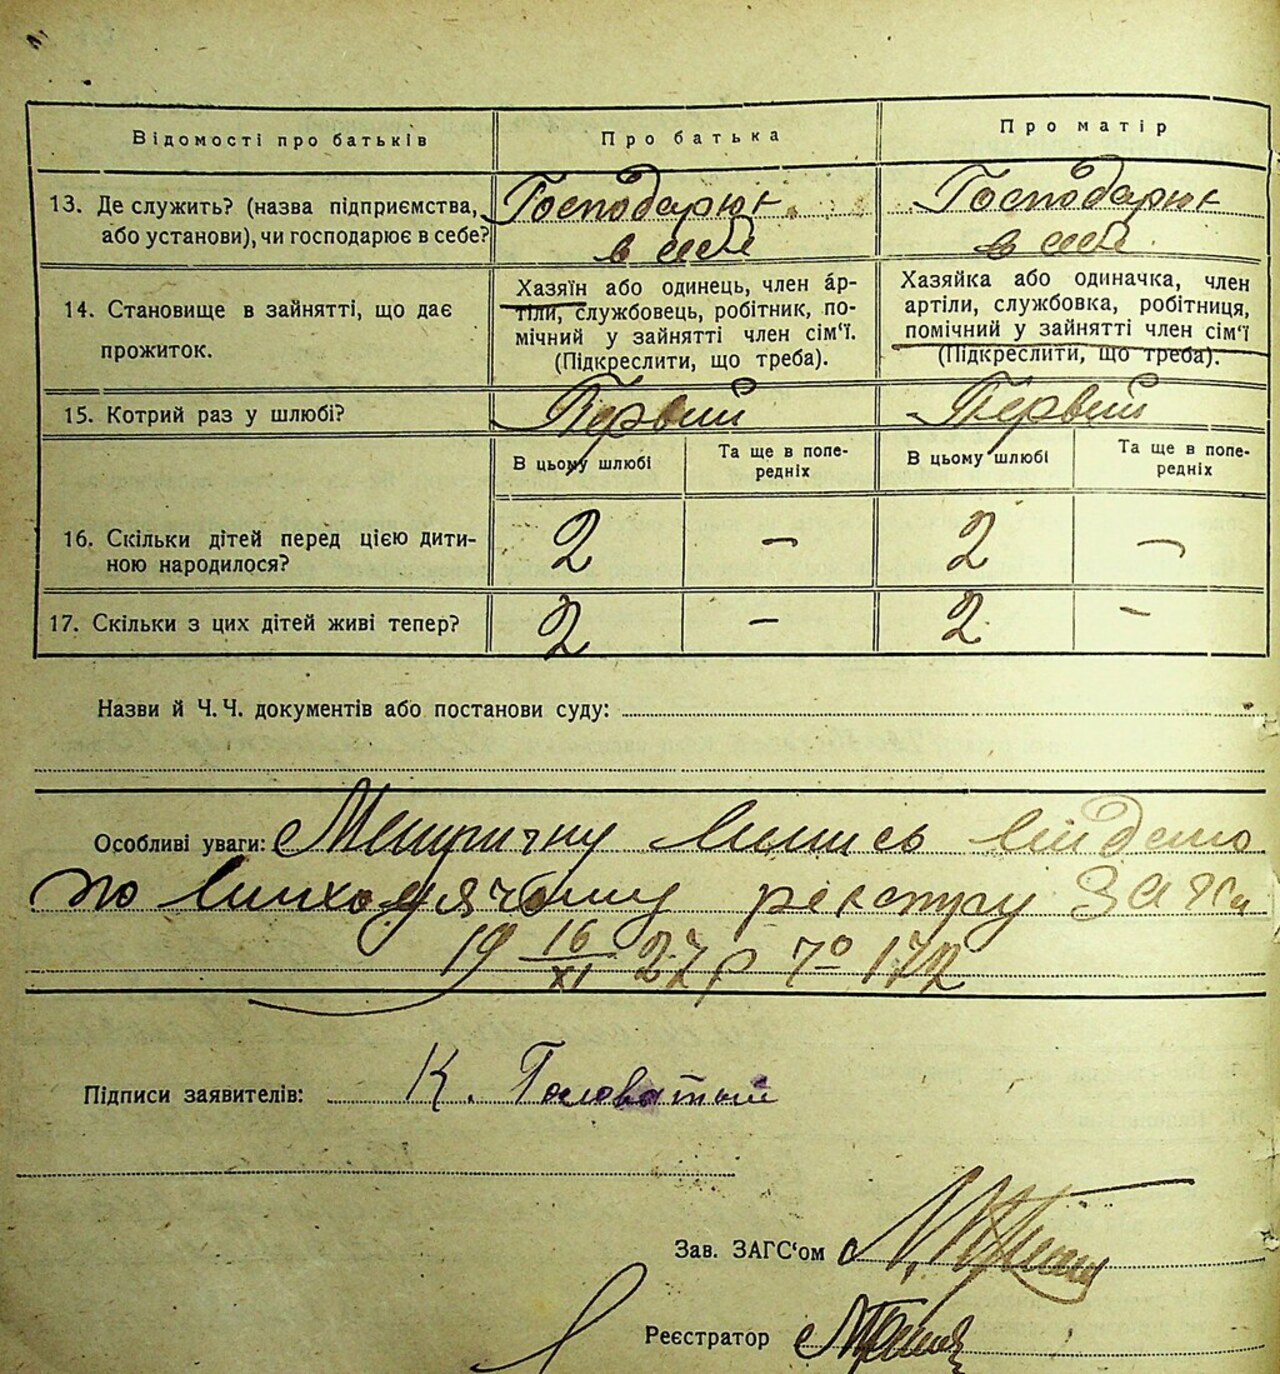 Відомості про батьків Про батька Про матір
13. Де служить? (назва підприємства, Господарює Господарює
або установи), чи господарює в себе? в себе в себе
14. Становище в зайнятті, що дає
прожиток.
Хазяїн або одинець, член ар-
тіли, службовець, робітник, по-
мічний у зайнятті член сім'ї.
(Підкреслити, що треба).
Хазяйка або одиначка, член
артіли, службовка, робітниця,
помічний у зайнятті член сім'ї
(Підкреслити, що треба).
15. Котрий раз у шлюбі? Первий Первий
В цьому шлюбі Та ще в попе-
редніх В цьому шлюбі Та ще в попе-
редніх
16. Скільки дітей перед цією дити-
ною народилося? 2 – 2 –
17. Скільки з цих дітей живі тепер? 2 – 2 –
Назви й Ч. Ч. документів або постанови суду:
Особливі уваги: Метричну випись видано
по виходячому реєстру
19 16/XI 27 р 172
Підписи заявителів: К. Головатый
Зав. ЗАГС'ом
Реєстратор